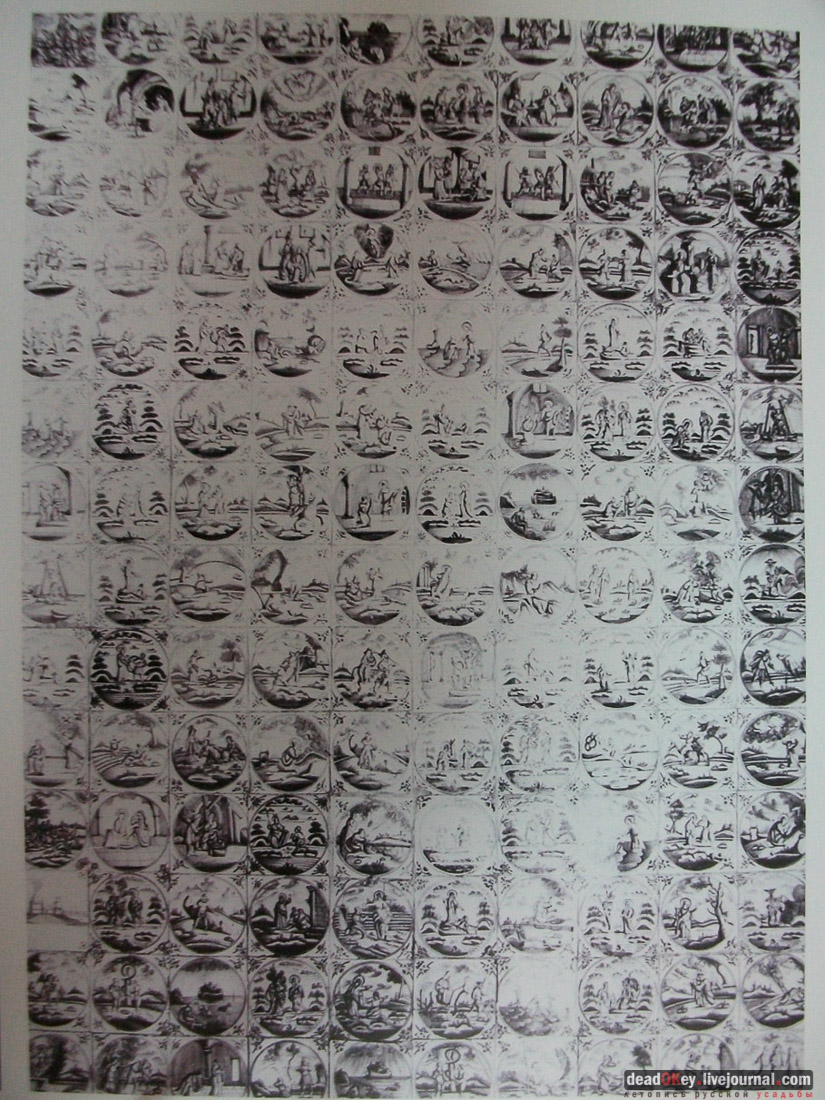 deadOKey.livejournal.com
летопись русской усадьбы